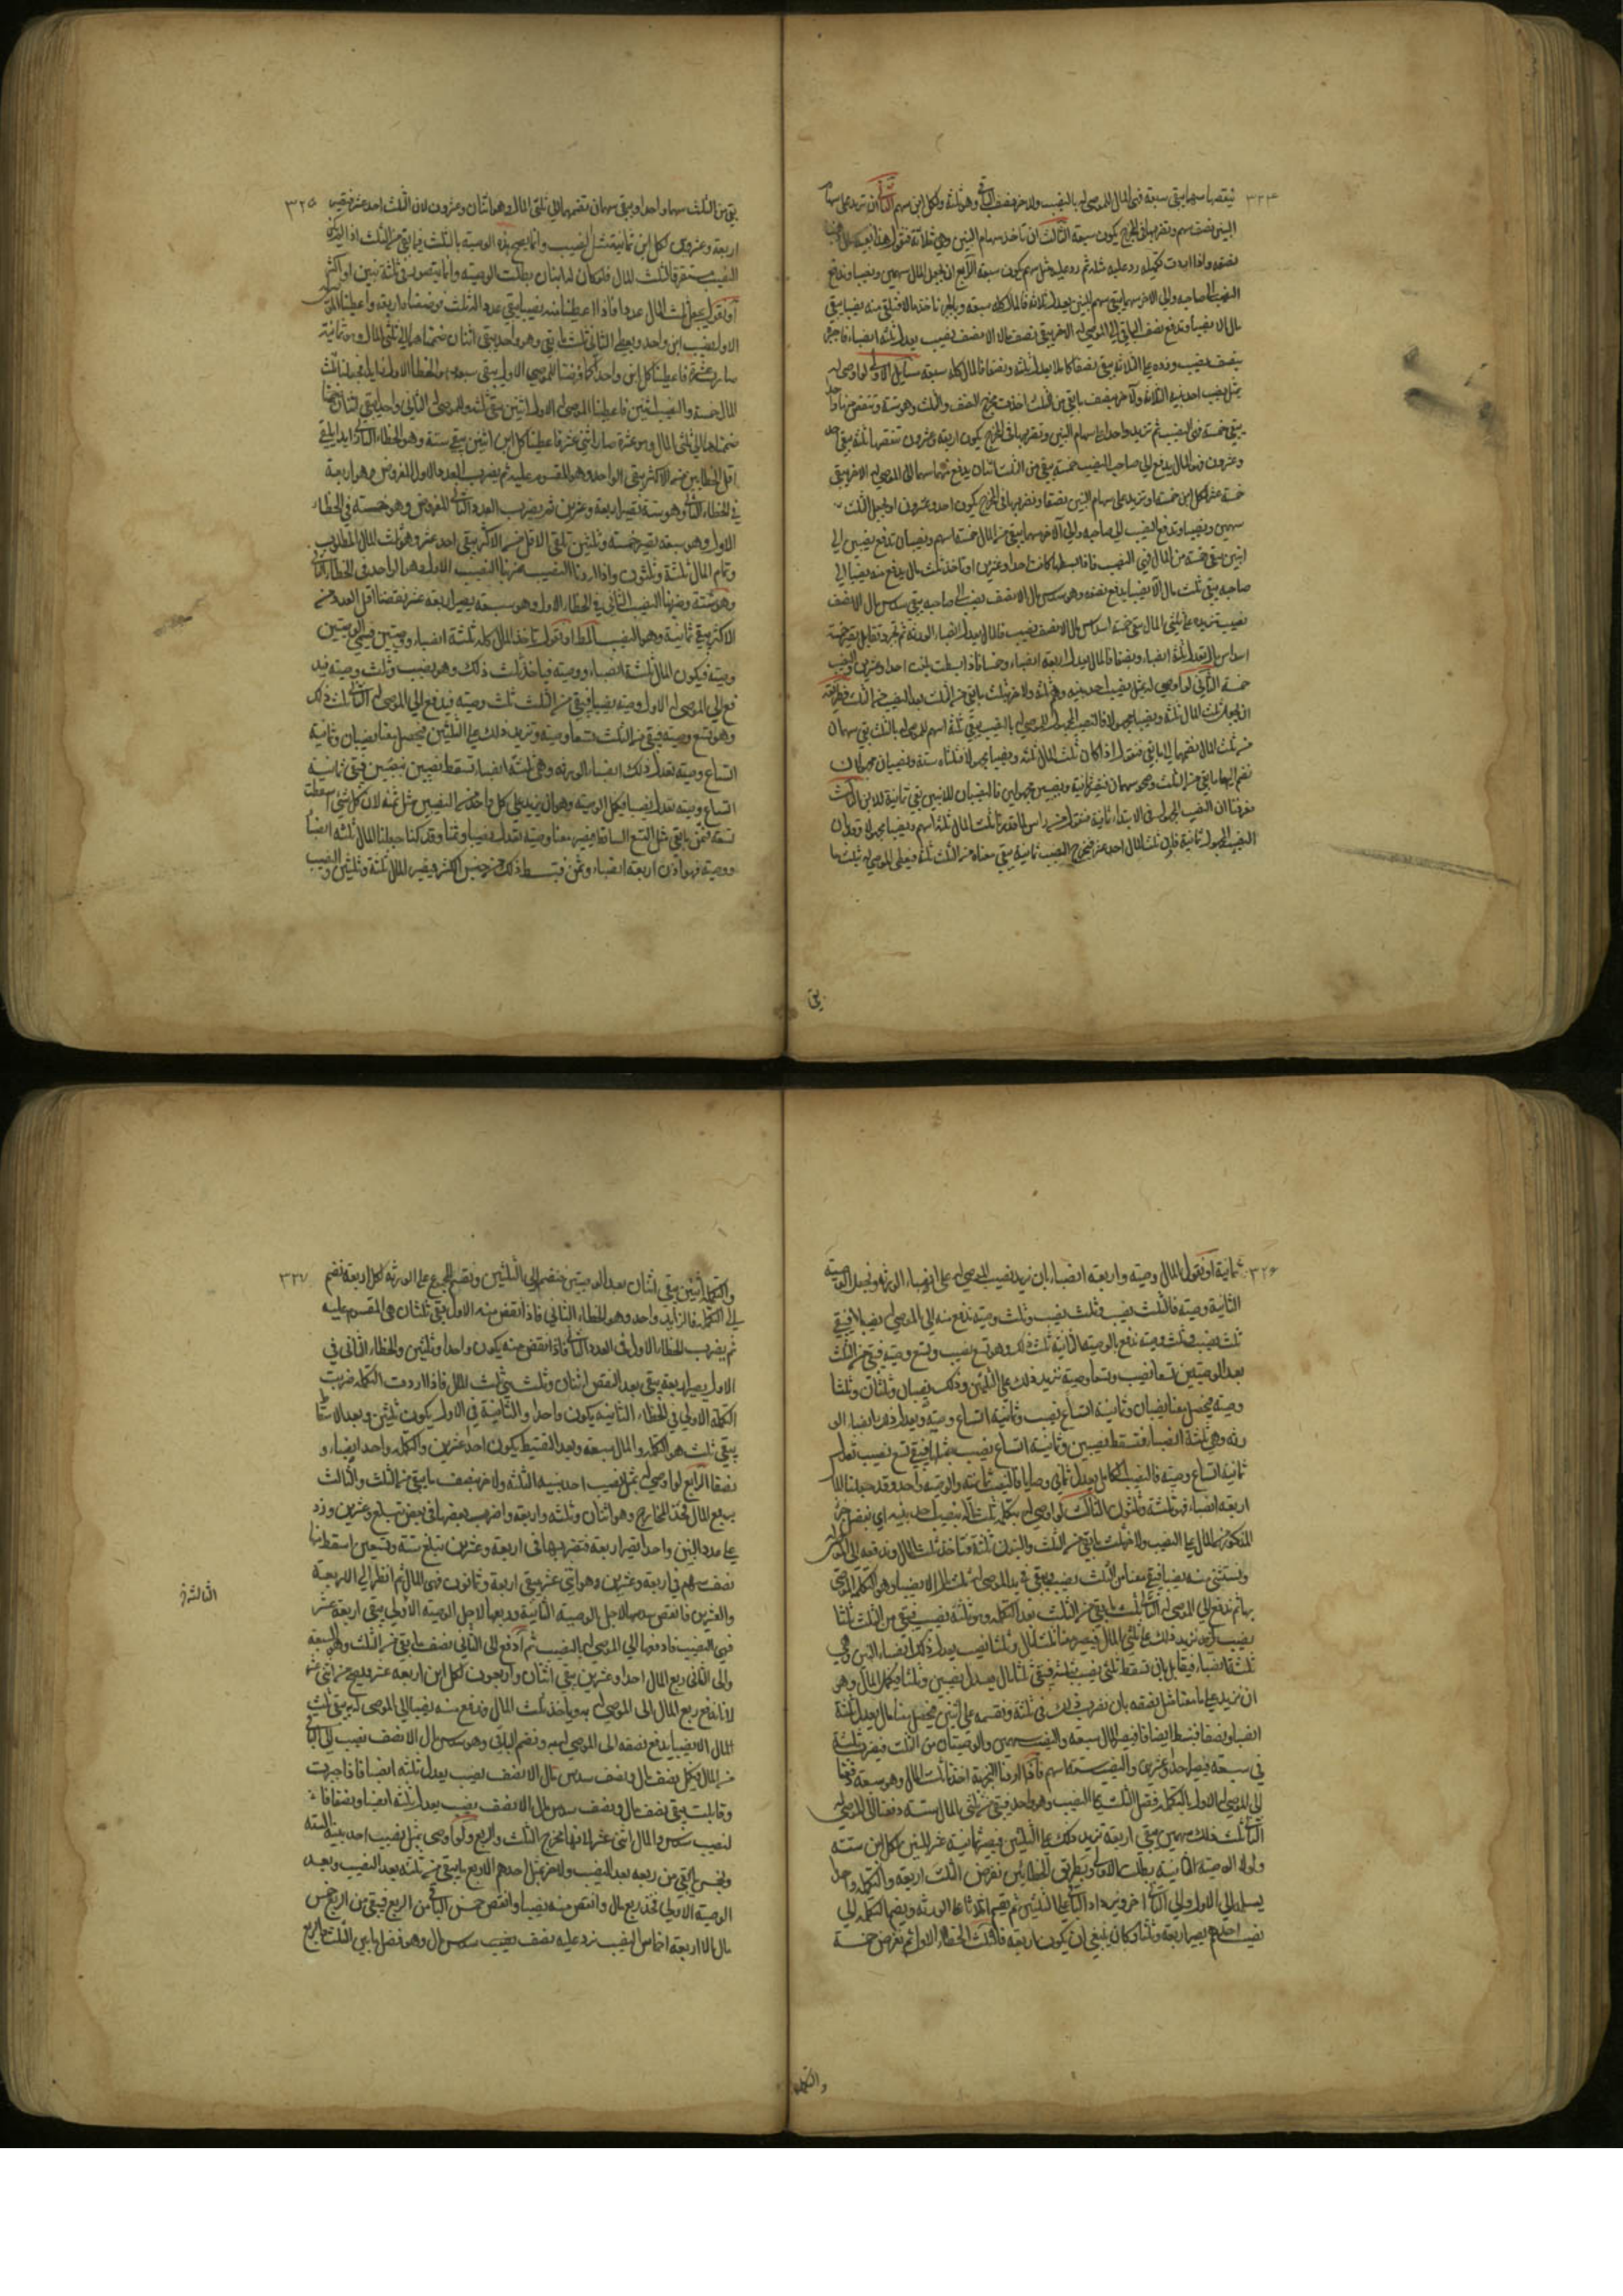 ٣٢٤
ينقصها سهما يبقى سبعة فهي المال للموصى له بالنصيب ولاخر نصف الباقي وهو ثلثة ولكل ابن سهم الثاني ان تزيد على سهام
البنين نصف سهم وتضربها في المخرج يكون سبعة الثالث ان تاخذ سهام البنين وهي ثلاثة فنقول هذا بقية مال ذهب
نصفه واذا اردت تكميله زد عليه مثله ثم زد عليه مثل سهم يكون سبعة الرابع ان تجعل المال سهمين ونصيبا وتدفع
النصيب الى صاحبه والى الاخر سهما يبقى سهم للبنين يعدل ثلاثة فالمال كله سبعة وبالجبر تاخذ مالا فتلقي منه نصيبا يبقى
مال الا نصيبا وتدفع نصف الباقي الى الموصى له الاخر يبقى نصف مال الا نصف نصيب يعدل ثلثة انصباء فاجبره
بنصف نصيب وزده على الثلاثة يبقى نصفا كاملا يعدل ثلثة ونصفا فالمال كله سبعة مسايل الاولى لو اوصى له
بمثل نصيب احد بنيه الثلاثة ولاخر بنصف ما يبقى من الثلث اخذت مخرج النصف والثلث وهو ستة وتنقص منها واحدا
يبقى خمسة فهي النصيب ثم تزيد واحدا على سهام البنين وتضربها في المخرج يكون اربعة وعشرون تنقصها ثلثة يبقى احد
وعشرون فهو المال يدفع الى صاحب النصيب خمسة يبقى من الثلث اثنان يدفع منهما سهما الى الموصى له الاخر يبقى
خمسة عشر لكل ابن خمسة او تزيد على سهام البنين نصفا وتضربها في المخرج يكون احد وعشرون او تجعل الثلث
سهمين ونصيبا وتدفع النصيب الى صاحبه والى الآخر سهما يبقى من المال خمسة اسهم ونصيبان تدفع نصيبين الى
ابنين يبقى خمسة من المال فهي النصيب فاذا بسطها كانت احدا وعشرين او تاخذ ثلث مال يدفع منه نصيبا الى
صاحبه يبقى ثلث مال الا نصيبا يدفع نصفه وهو سدس مال الا نصف نصيب الى صاحبه يبقى سدس مال الا نصف
نصيب تزيده على ثلثي المال يبقى خمسة اسداس مال الا نصف نصيب فالمال يعدل انصباء الورثة ثم تجبر وتقابل يصير خمسة
اسداس مال تعدل ثلثة انصباء ونصفا فالمال يعدل اربعة انصباء وخمسا فاذا بسطت بلغت احدا وعشرين والنصيب
خمسة الثاني لو اوصى له بمثل نصيب احد بنيه وهم ثلثة ولاخر بثلث ما يبقى من الثلث بعد النصيب من الثلث فطريقه
ان يجعل ثلث المال ثلثة ونصيبا مجهولا فالنصيب المجهول للموصى له بالنصيب يبقى ثلثة اسهم للموصى له بالثلث يبقى سهمان
من ثلث المال نضمهما الى ما بقي فنقول اذا كان ثلث المال ثلثة ونصيبا مجهولا فثلثاه ستة ونصيبان مجهولان
نضم اليها ما بقي من الثلث وهو سهمان فيصير ثمانية ونصيبين مجهولين فالنصيبان للابنين يبقى ثمانية للابن الثالث
فعرفنا ان النصيب المجهول في الابتداء ثمانية فنقول من راس للمال قدرنا ثلث المال ثلثة اسهم ونصيبا مجهولا وقد بان
النصيب المجهول ثمانية فاذن ثلث المال احد عشر فيخرج النصيب ثمانية يبقى معنا من الثلث ثلثة فيعطى الموصى له ثلث ما
يبق
٣٢٥
يبقى من الثلث سهما واحدا ويبقى سهمان تضمهما الى ثلثي المال وهو اثنان وعشرون لان الثلث احد عشر فيصير
اربعة وعشرون لكل ابن ثمانية مثل النصيب وانما يصح هذه الوصية بالثلث فيما يبقى من الثلث اذا لم يكن
النصيب مستغرقا لثلث المال فلو كان له ابنان بطلت الوصية وانما يتصور في ثلثة بنين او اكثر
او نقول يجعل ثلث المال عددا فاذا اعطينا منه نصيبا يبقى عدد له ثلث فوضعناه اربعة واعطينا الموصى له
الاول نصيب ابن واحد ويعطي الثاني ثلث ما بقي وهو واحد يبقى اثنان ضمهما الى ثلثي المال وهو ثمانية
صار عشرة فاعطينا كل ابن واحدا كما فرضنا للموصى الاول يبقى سبعة وهو الخطا الاول زايدا فجعلنا ثلث
المال خمسة والنصيب اثنين فاعطينا الموصى له الاول اثنين يبقى ثلثه والموصى له الثاني واحد يبقى اثنان
ضمهما الى ثلثي المال وهو عشرة صار اثني عشر فاعطينا كل ابن اثنين يبقى ستة وهو الخطاء الثاني زايد ايلقي
اقل الخطايين من الاكثر يبقى الواحد وهو المقسوم عليه ثم يضرب العدد الاول المفروض وهو اربعة
في الخطاء الثاني وهو ستة تصير اربعة وعشرين ثم يضرب العدد الثاني المفروض وهو خمسة في الخطاء
الاول وهو سبعة يصير خمسة وثلثين تلقى الاقل من الاكثر يبقى احد عشر وهو ثلث المال المطلوب
وتمام المال ثلثة وثلثون واذا اردنا النصيب ضربنا النصيب الاول وهو الواحد في الخطا الثاني
وهو ستة وضربنا النصيب الثاني في الخطاء الاول وهو سبعة يصير اربعة عشر نقصنا اقل العددين من
الاكثر يبقى ثمانية وهو النصيب المطلوب او نقول تاخذ المال كله ثلثة انصباء ووصيتين فسمي الوصيتين
وصية فيكون المال ثلثة انصباء ووصية فياخذ ثلث ذلك وهو نصيب وثلث وصية فيد
فع الى الموصى له الاول وصيته نصيبا فيبقى من الثلث ثلث وصية فيدفع الى الموصى له الثاني ثلث ذلك
وهو تسع وصية فيبقى من الثلث تسعا وصية وتزيد ذلك على الثلثين فيحصل معنا نصيبان وثمانية
اتساع وصية تعدل ذلك انصباء الورثة وهي ثلثة انصباء تسقط نصيبين بنصيبين فيبقى ثمانية
اتساع وصية تعدل نصيبا فيكمل الوصية وهو ان يزيد على كل واحد من النصيبين مثل ثمنه لان كل شيئ اسقطت
تسعه فثمن ما بقي مثل التسع الساقط فيصير معنا وصية تعدل نصيبا وثمنا وقد كنا جعلنا المال ثلثة انصباء
ووصية فهو اذن اربعة انصباء وثمن فتبسط ذلك من جنس الكسر فيصير المال ثلثة وثلثين والنصيب
٣٢٦
ثمانية او نقول المال وصية واربعة انصباء بان نزيد نصيب الموصى له على انصباء الورثة ونجعل الوصية
الثانية وصية فالثلث نصيب وثلث نصيب وثلث وصية ندفع منه الى الموصى له نصيبا فيبقى
ثلث نصيب وثلث وصية ندفع بالوصية الثانية ثلث ذلك وهو تسع نصيب وتسع وصية فيبقى من الثلث
بعد الوصيتين تسعا نصيب وتسعا وصية نزيد ذلك على الثلثين وذلك نصيبان وثلثان وثلثا
وصية فيحصل معنا نصيبان وثمانية اتساع نصيب وثمانية اتساع وصية ويعدل ذلك انصباء الو
رثة وهي ثلثة انصباء فتسقط نصيبين وثمانية اتساع نصيب بمثلها فيبقى تسع نصيب تعدل
ثمانية اتساع وصية فالنصيب الكامل يعدل ثماني وصايا فالنصيب ثمانية والوصية واحد وقد جعلنا المال
اربعة انصباء فهو ثلثة وثلثون الثالث لو اوصى له بتكملة ثلث ماله بنصيب احد بنيه اي بفضل جزء
المذكور من المال على النصيب ولاخر بثلث ما بقي من الثلث والبنون ثلثة فتاخذ ثلث المال وتدفعه الى الموصى له
ونستثني منه نصيبا فيبقى معنا من الثلث نصيب ويبقى في يد الموصى له ثلث مال الا نصيبا وهو التكملة الموصى
بها ثم ندفع الى الموصى له الثاني ثلث ما يبقى من الثلث بعد التكملة وهو ثلث نصيب فيبقى من الثلث ثلثا
نصيب نزيد ذلك على ثلثي المال فيصير معنا ثلثا مال وثلثا نصيب يعدل ذلك انصباء البنين وهي
ثلثة انصباء فيقابل بان تسقط ثلثي نصيب بمثله فيبقى ثلثا مال يعدل نصيبين وثلثا فيكمل المال وهو
ان نزيد على ما معنا مثل نصفه بان نضرب ذلك في ثلثة ونقسمه على اثنين فيحصل معنا مال يعدل ثلثة
انصباء ونصفا فنبسط انصافا فيصير المال سبعة والنصيب سهمين والوصيتان من الثلث فيضرب ثلثة
في سبعة فيصير احد وعشرين والنصيب ستة اسهم فاذا اردنا التجربة اخذنا ثلث المال وهو سبعة دفعنا
الى الموصى له الاول بالتكملة فضل الثلث على النصيب وهو واحد فيبقى من ثلث المال ستة دفعنا الى الموصى له
الثاني ثلث ذلك سهمين يبقى اربعة نزيد ذلك على الثلثين فيصير ثمانية عشر للبنين لكل ابن ستة
ولولا الوصية الثانية بطلت الاولى وبطريق الخطاين نفرض الثلث اربعة والتكملة واحدا
يسلم الى الاول والى الثاني اخر ونزيد اذا الثاني على الثلثين ثم نقسم اثلاثا على الورثة ونضم التكملة الى
نصيب احدهم يصير اربعة وثلثا وكان ينبغي ان يكون اربعة فالثلث الخطاء الاول ثم نفرض خمسة
والتكملة
٣٢٧
والتكملة اثنين يبقى اثنان بعد الوصيتين فنضم الى الثلثين ونقسم المجموع على الورثة لكل اربعة نضم
الى التكملة فالزايد واحد وهو الخطاء الثاني فاذا نقص منه الاول يبقى ثلثان هي المقسوم عليه
ثم يضرب الخطاء الاول في العدد الثاني فاذا نقص منه يكون واحدا وثلثين والخطاء الثاني في
الاول يصير اربعة يبقى بعد النقص اثنان وثلث هي ثلث المال فاذا اردت التكملة ضربت
التكملة الاولى في الخطاء الثانية يكون واحدا والثانية في الاول يكون ثلثين وبعد الاسقاط
يبقى ثلث هو التكملة والمال سبعة وبعد التبسيط يكون احد عشرين والتكملة واحد انصباء و
نصفا الرابع لو اوصى له بمثل نصيب احد بنيه الثلثة ولاخر بنصف ما يبقى من الثلث والثالث
بربع المال فخذ المخارج وهو اثنان وثلثة واربعة واضرب بعضها في بعض تبلغ وعشرين وزد
على عدد البنين واحدا يصير اربعة فتضربها في اربعة وعشرين تبلغ ستة وتسعين اسقط منها
نصف سهم في اربعة وعشرين وهو اثني عشر يبقى اربعة وثمانون فهي المال ثم انظر الى الاربعة
والعشرين فانقص سدسها لاجل الوصية الثانية وربعها لاجل الوصية الاولى يبقى اربعة عشر
فهي النصيب فادفعها الى الموصى له بالنصيب ثم ادفع الى الثاني نصف ما بقي من الثلث وهو سبعة
والى الثاني ربع المال احدا وعشرين يبقى اثنان واربعون لكل ابن اربعة عشر ويصح من اثني عشر
لانا ندفع ربع المال الى الموصى له به وياخذ ثلث المال وندفع منه نصيبا الى الموصى له به يبقى ثلث
المال الا نصيبا يدفع نصفه الى الموصى له به ونضم الباقي وهو سدس مال الا نصف نصيب الى الباقي
من المال فيكمل نصف مال ونصف سدس مال الا نصف نصيب يعدل ثلثة انصبا فاذا جبرت
وقابلت يبقى نصف مال ونصف سدس مال الا نصف نصيب يعدل ثلثة انصباء ونصفا فا
لنصيب سدس والمال اثنى عشر لانها مخرج الثلث والربع ولو اوصى بمثل نصيب احد بنيه الستة
وبخمس ما يبقى من ربعه بعد النصيب ولاخر بمثل احدهم الا ربع ما يبقى من ثلثه بعد النصيب وبعد
الوصية الاولى فخذ ربع مال وانقص منه نصيبا وانقص خمس الباقي من الربع فيبقى من الربع خمس
مال الا اربعة اخماس النصيب زد عليه نصف نصيب سدس مال وهو فضل ما بين الثلث والربع
الثالثة